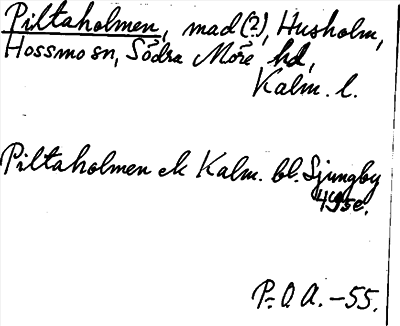 Piltaholmen, mad (?), Husholm,
Hossmo sn, Södra Möre hd,
Kalm. l.
Piltaholmen ek Kalm. bl. Ljungby
4 9 5 e.
P. O A. -55.